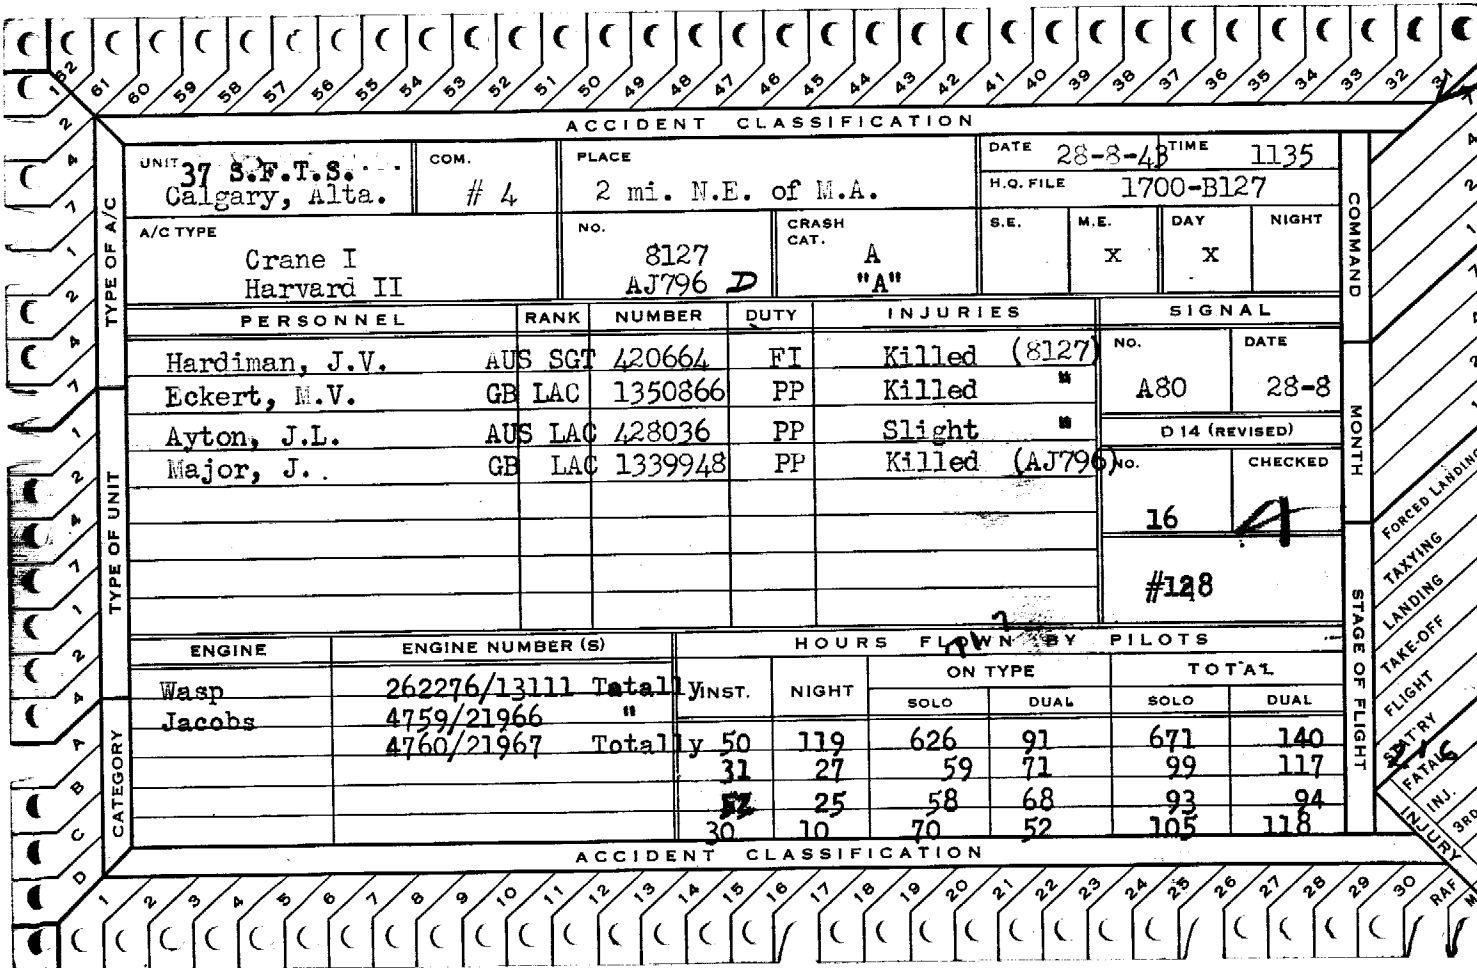 62 61 60 59 58 57 56 55 54 53 52 51 50 49 48 47 46 45 44 43 42 41 40 39 38 37 36 35 34 33 32 31
ACCIDENT CLASSIFICATION
UNIT 37 S.F.T.S.
Calgary, Alta.
COM.
# 4
PLACE
2 mi. N.E. of M.A.
DATE 28-8-43 TIME 1135
H.Q. FILE 1700-B127
A/C TYPE
Crane I
Harvard II
NO.
8127
AJ796 D
CRASH
CAT.
A
"A"
S.E. M.E. DAY NIGHT
x x
PERSONNEL RANK NUMBER DUTY INJURIES
Hardiman, J.V. AUS SGT 420664 FI Killed (8127)
Eckert, M.V. GB LAC 1350866 PP Killed "
Ayton, J.L. AUS LAC 428036 PP Slight "
Major, J. GB LAC 1339948 PP Killed (AJ796)
SIGNAL
NO. DATE
A80 28-8
D 14 (REVISED)
NO. CHECKED
16
#128
ENGINE ENGINE NUMBER (S)
Wasp 262276/13111 Totally
Jacobs 4759/21966 "
4760/21967 Totally
HOURS FLOWN BY PILOTS
INST. NIGHT ON TYPE TOTAL
SOLO DUAL SOLO DUAL
50 119 626 91 671 140
31 27 59 71 99 117
25 58 68 93 94
30 10 70 52 105 118
ACCIDENT CLASSIFICATION
1 2 3 4 5 6 7 8 9 10 11 12 13 14 15 16 17 18 19 20 21 22 23 24 25 26 27 28 29 30 RAF
TYPE OF A/C
TYPE OF UNIT
CATEGORY
1 2 4 7 1 2 4 7 1 2 4 7 1 2 4 A B C D
COMMAND
MONTH
STAGE OF FLIGHT
FORCED LANDING
TAXYING
LANDING
TAKE-OFF
FLIGHT
STAT'RY
FATAL
INJ.
3RD
INJURY